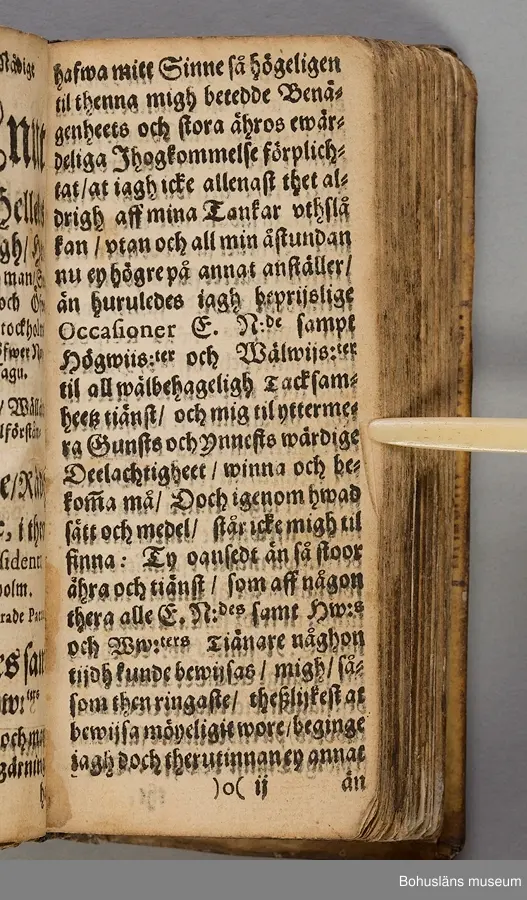 Nådige
hafwa mitt Sinne så högeligen
til thenna migh betedde Benä-
genheets och stora ähros ewär-
deliga Ihogkommelse förplich-
tat/at iagh icke allenast thet al-
drigh aff mina Tankar vthslå
kan / vtan och all min åstundan
nu ey högre på annat anställer/
än huruledes iagh beprijslige
Occasioner E. N:de sampt
Högwijs:ter och Wälwijs:ter
til all wälbehageligh Tacksam-
heetz tiänst/ och mig til ytterme-
ra Gunsts och Ynnests wärdige
Deelachtigheet / winna och be-
kom̄a må/ Doch igenom hwad
sätt och medel/ står icke migh til
finna: Ty oansedt än så stoor
ähra och tiänst/ som aff någon
thera alle E. N:des samt Hw:s
och Ww:ters Tiänare någhon
tijdh kunde bewijsas/ migh/ så-
som then ringaste/ theßlijkest at
bewijsa möyeligit wore/beginge
iagh doch therutinnan ey annat
)o( ij än
och
sagu.
/ Wäll
, i the
sident
holm.
och ma
Bohusläns museum